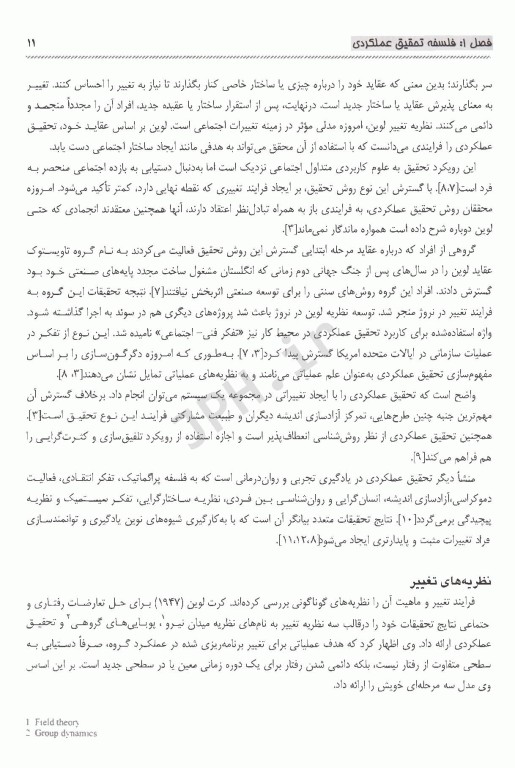 فصل ۱: فلسفه تحقیق عملکردی ۱۱
سر بگذارند؛ بدین معنی که عقاید خود را درباره چیزی یا ساختار خاصی کنار بگذارند تا نیاز به تغییر را احساس کنند. تغییـر
به معنای پذیرش عقاید یا ساختار جدید است. درنهایت، پس از استقرار ساختار یا عقیده جدید، افراد آن را مجدداً منجمـد و
دائمی می‌کنند. نظریه تغییر لوین، امروزه مدلی مؤثر در زمینه تغییرات اجتماعی است. لوین بر اساس عقایـد خـود، تحقیـق
عملکردی را فرایندی می‌دانست که با استفاده از آن محقق می‌تواند به هدفی مانند ایجاد ساختار اجتماعی دست یابد.
این رویکرد تحقیق به علوم کاربردی متداول اجتماعی نزدیک است اما به‌دنبال دستیابی به بازده اجتماعی منحصـر بـه
فرد است[۸،۷]. با گسترش این نوع روش تحقیق، بر ایجاد فرایند تغییری که نقطه نهایی دارد، کمتر تأکید می‌شود. امـروزه
محققان روش تحقیق عملکردی، به فرایندی باز به همراه تبادل‌نظر اعتقاد دارند، آنها همچنین معتقدند انجمادی که حتـی
لوین دوباره شرح داده است همواره ماندگار نمی‌ماند[۳].
گروهی از افراد که درباره عقاید مرحله ابتدایی گسترش این روش تحقیق فعالیت می‌کردند بـه نـام گـروه تاویسـتوک
عقاید لوین را در سال‌های پس از جنگ جهانی دوم زمانی که انگلستان مشغول ساخت مجدد پایه‌های صـنعتی خـود بـود
گسترش دادند. افراد این گروه روش‌های سنتی را برای توسعه صنعتی اثربخش نیافتند[۷]. نتیجه تحقیقات ایـن گـروه بـه
فرایند تغییر در نروژ منجر شد. توسعه نظریه لوین در نروژ باعث شد پروژه‌های دیگری هم در سوئد به اجرا گذاشـته شـود.
واژه استفاده‌شده برای کاربرد تحقیق عملکردی در محیط کار نیز «تفکر فنی- اجتماعی» نامیده شد. ایـن نـوع از تفکـر در
عملیات سازمانی در ایالات متحده امریکا گسترش پیدا کـرد[۳، ۷]. به‌طـوری کـه امـروزه دگرگون‌سـازی را بـر اسـاس
مفهوم‌سازی تحقیق عملکردی به‌عنوان علم عملیاتی می‌نامند و به نظریه‌های عملیاتی تمایل نشان می‌دهند[۳، ۸].
واضح است که تحقیق عملکردی را با ایجاد تغییراتی در مجموعه یک سیستم می‌توان انجام داد. برخلاف گسترش آن
مهم‌ترین جنبه چنین طرح‌هایی، تمرکز آزادسازی اندیشه دیگران و طبیعت مشارکتی فراینـد ایـن نـوع تحقیـق اسـت[۳].
همچنین تحقیق عملکردی از نظر روش‌شناسی انعطاف‌پذیر است و اجازه استفاده از رویکرد تلفیق‌سازی و کثـرت‌گرایـی را
هم فراهم می‌کند[۹].
منشأ دیگر تحقیق عملکردی در یادگیری تجربی و روان‌درمانی است که به فلسفه پراگماتیک، تفکر انتقـادی، فعالیـت
دموکراسی، آزادسازی اندیشه، انسان‌گرایی و روان‌شناسی بـین فـردی، نظریـه سـاختارگرایی، تفکـر سیسـتمیک و نظریـه
پیچیدگی برمی‌گردد[۱۰]. نتایج تحقیقات متعدد بیانگر آن است که با به‌کارگیری شیوه‌های نوین یادگیری و توانمندسـازی
فراد تغییرات مثبت و پایدارتری ایجاد می‌شود[۱۱،۱۲،۸].
نظریه‌های تغییر
فرایند تغییر و ماهیت آن را نظریه‌های گوناگونی بررسی کرده‌اند. کرت لوین (۱۹۴۷) بـرای حـل تعارضـات رفتـاری و
جتماعی نتایج تحقیقات خود را درقالب سه نظریه تغییر به نام‌های نظریه میدان نیـرو۱، پویـایی‌هـای گروهـی۲ و تحقیـق
عملکردی ارائه داد. وی اظهار کرد که هدف عملیاتی برای تغییر برنامه‌ریزی شده در عملکـرد گـروه، صـرفاً دسـتیابی بـه
سطحی متفاوت از رفتار نیست، بلکه دائمی شدن رفتار برای یک دوره زمانی معین یا در سطحی جدید است. بر این اساس
وی مدل سه مرحله‌ای خویش را ارائه داد.
1 Field theory
2 Group dynamics